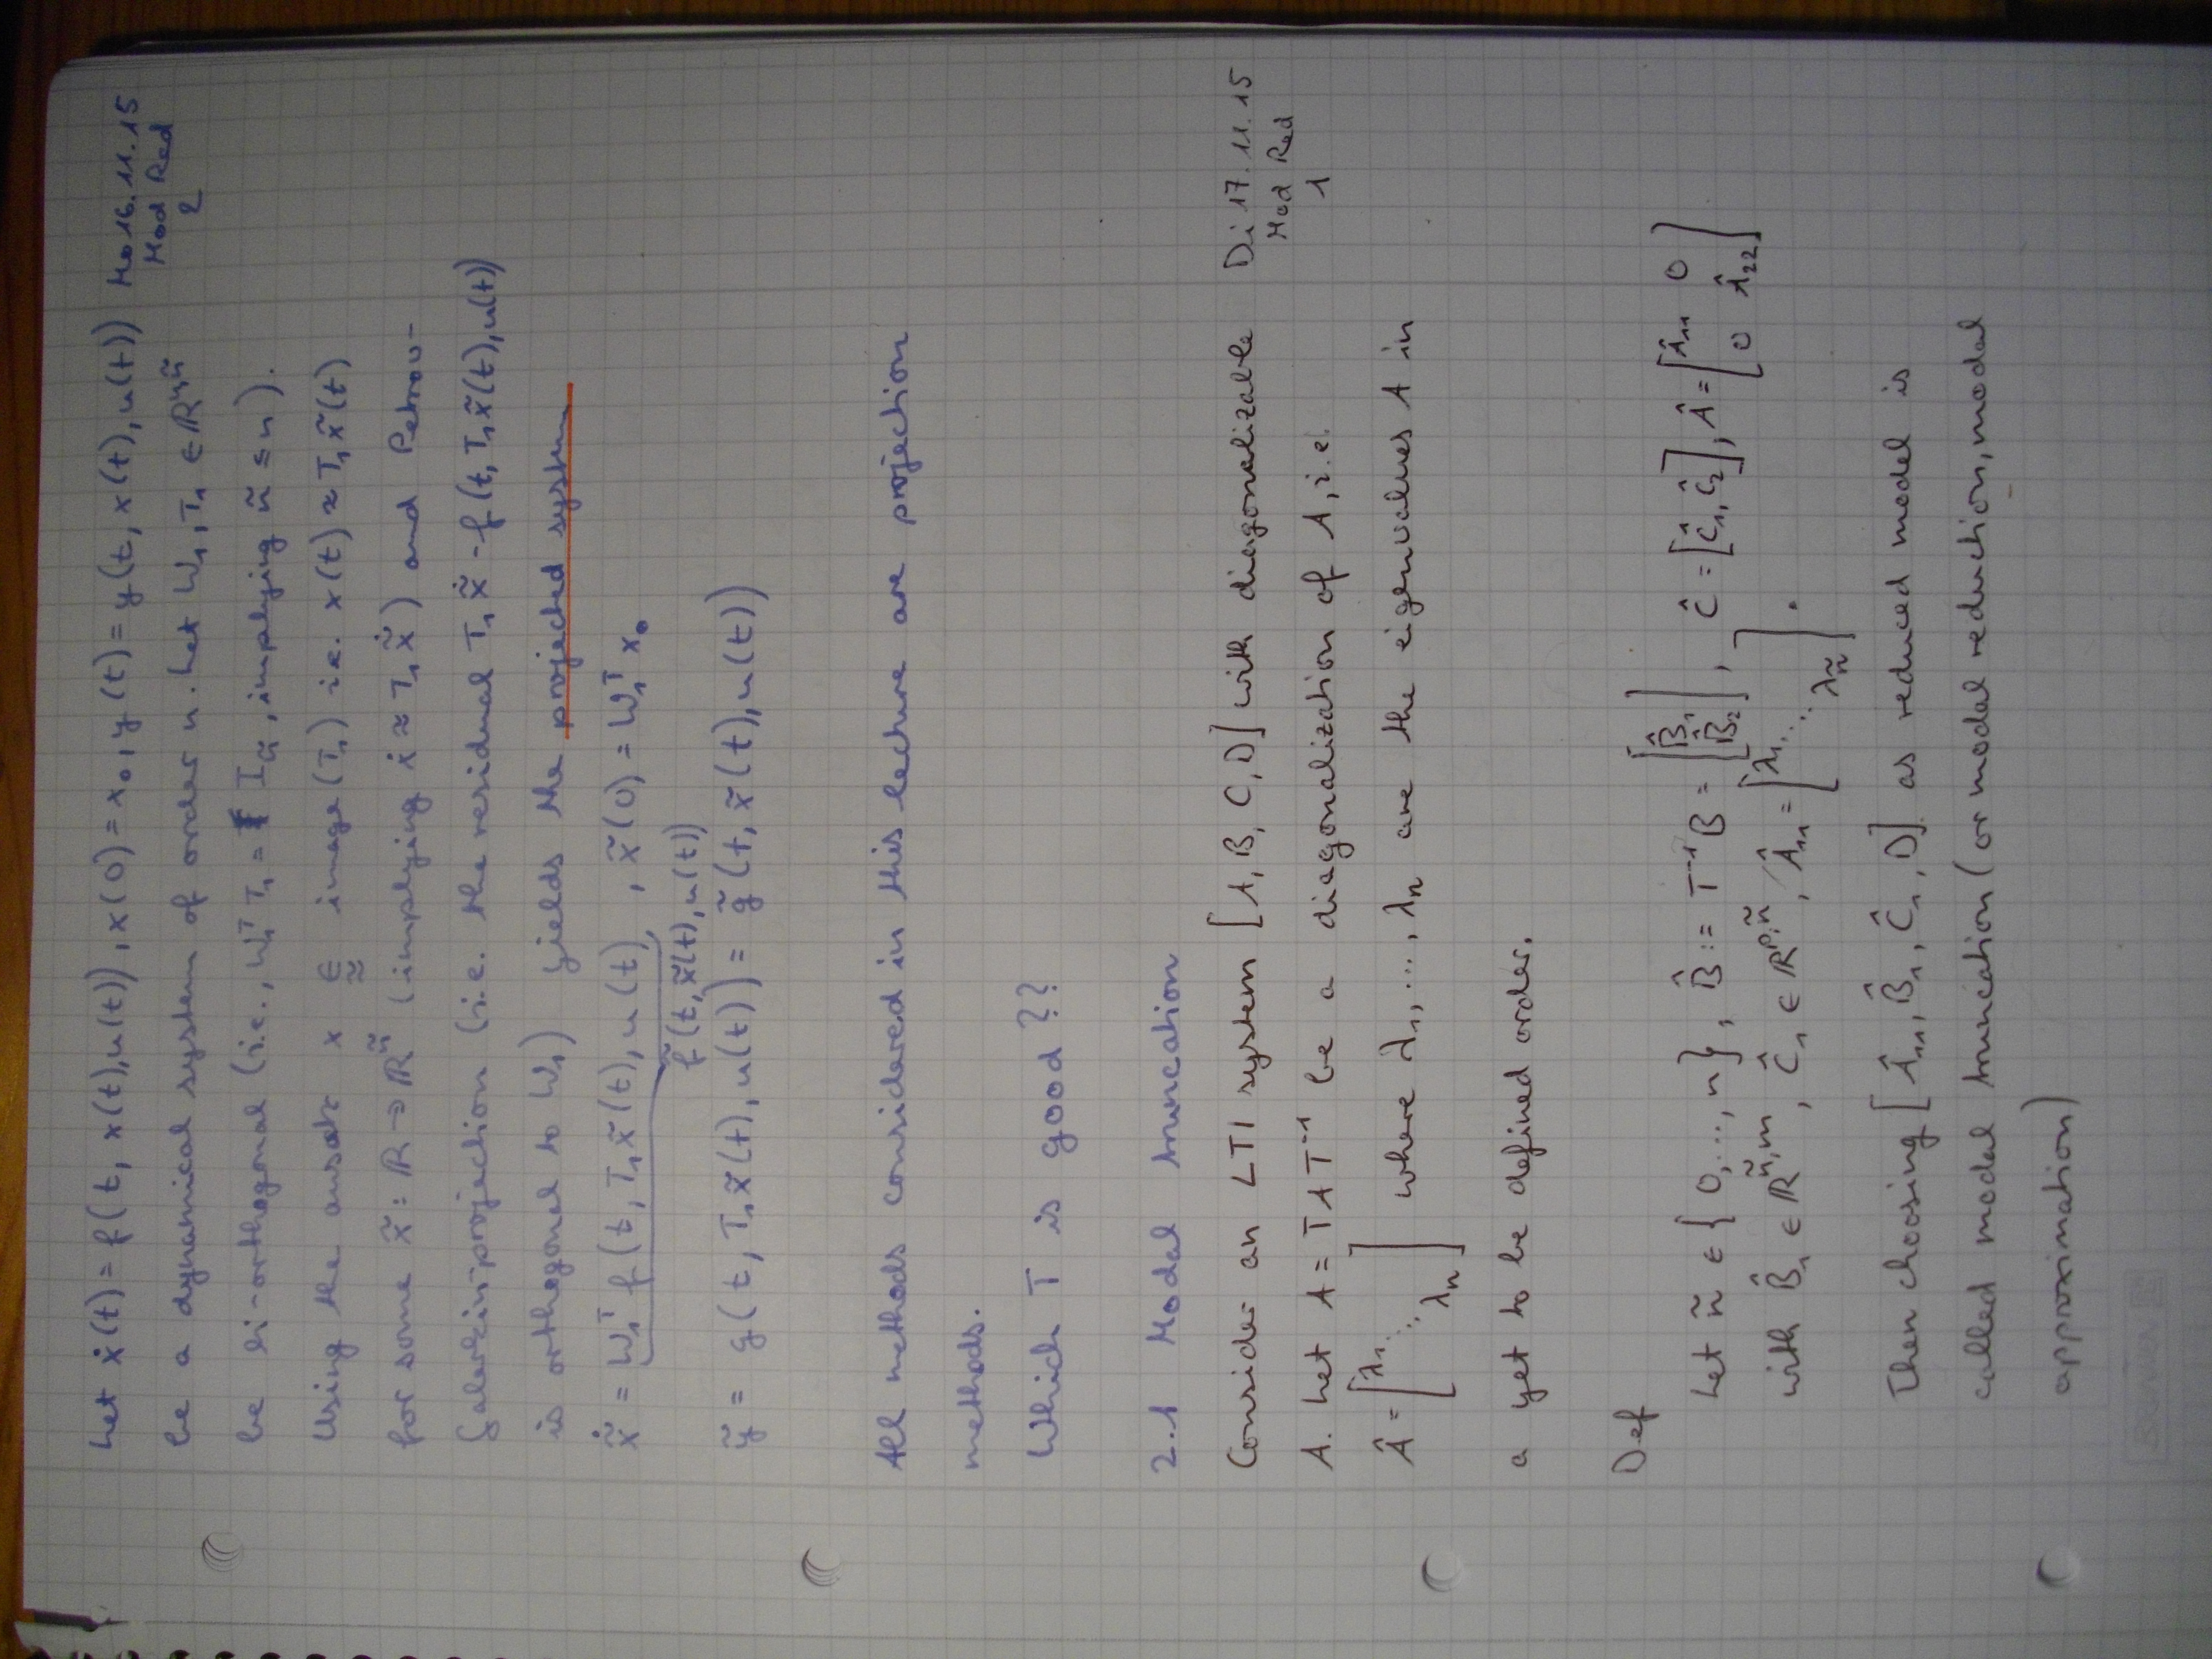 Let ẋ(t) = f(t, x(t), u(t)), x(0) = x₀, y(t) = y(t, x(t), u(t)) Mo 16.11.15
Mod Red
2
be a dynamical system of order n. Let W₁, T₁ ∈ ℝⁿ,ⁿ̃
be bi-orthogonal (i.e., W₁ᵀ T₁ = I_ñ, implying ñ ≤ n).
Using the ansatz x ∈̃ image (T₁) i.e. x(t) ≈ T₁ x̃(t)
for some x̃ : ℝ → ℝ^ñ (implying ẋ ≈ T₁ x̃̇) and Petrov-
Galerkin projection (i.e. the residual T₁ x̃̇ - f(t, T₁ x̃(t), u(t))
is orthogonal to W₁) yields the projected system
x̃̇ = W₁ᵀ f(t, T₁ x̃(t), u(t), x̃(0) = W₁ᵀ x₀
f̃(t, x̃(t), u(t))
ỹ = g(t, T₁ x̃(t), u(t)) = g̃(t, x̃(t), u(t))
All methods considered in this lecture are projection
methods.
Which T is good ??
2.1 Modal truncation
Consider an LTI system [A, B, C, D] with diagonalizable Di 17.11.15
Mod Red
1
A. Let A = T Â T⁻¹ be a diagonalization of A, i.e.
Â = [λ₁ ⋱ λₙ] where λ₁, ..., λₙ are the eigenvalues A in
a yet to be defined order.
Def
Let ñ ∈ {0, ..., n}, B̂ := T⁻¹ B = [B̂₁ B̂₂], Ĉ = [Ĉ₁, Ĉ₂], Â = [Â₁₁ 0 0 Â₂₂]
with B̂₁ ∈ ℝ^ñ,m, Ĉ₁ ∈ ℝ^p,ñ, Â₁₁ = [λ₁ ⋱ λ_ñ].
Then choosing [Â₁₁, B̂₁, Ĉ₁, D] as reduced model is
called modal truncation (or model reduction, modal
approximation)